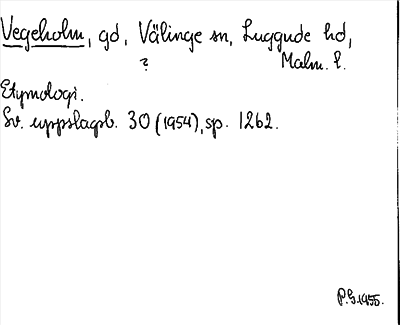 Vegeholm, gd, Välinge sn, Luggude hd,
? Malm. l.
Etymologi.
Sv. uppslagsb. 30 (1954), sp. 1262.
P.G. 1955.